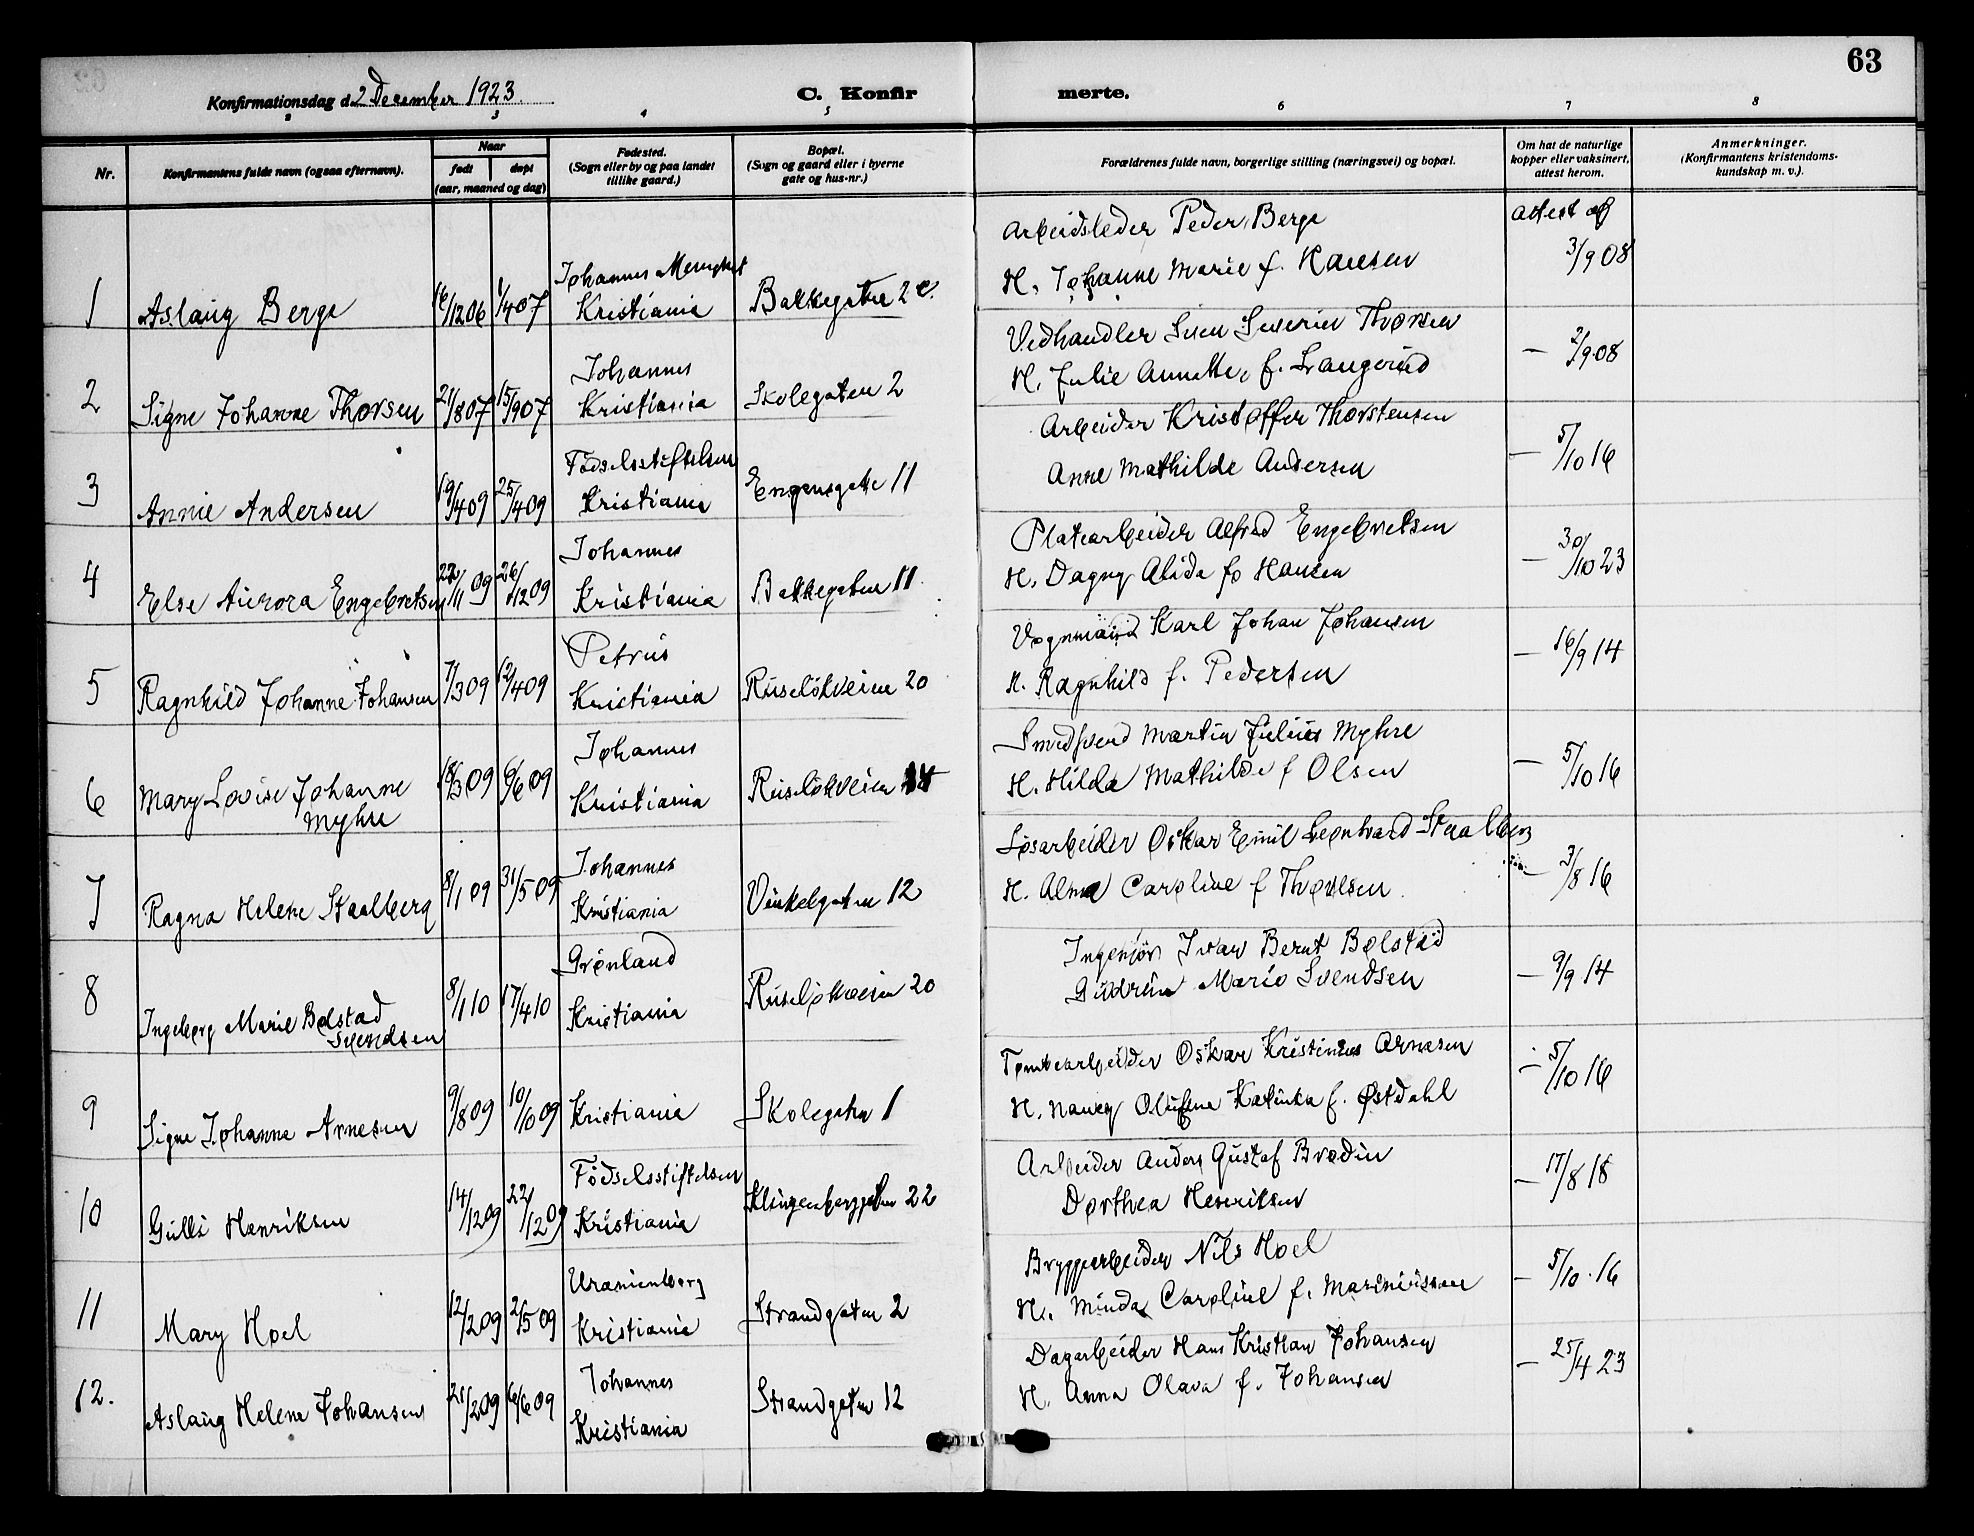 63
Konfirmationsdag d. 2 December 1923.
C. Konfirmerte.
2 3 4 5 6 7 8
Nr.
Konfirmantens fulde navn (ogsaa efternavn).
Naar
født døpt
(aar, maaned og dag)
Fødested.
(Sogn eller by og paa landet
tillike gaard.)
Bopæl.
(Sogn og gaard eller i byerne
gate og hus-nr.)
Forældrenes fulde navn, borgerlige stilling (næringsvei) og bopæl.
Om hat de naturlige
kopper eller vaksinert,
attest herom.
Anmerkninger.
(Konfirmantens kristendoms-
kundskap m. v.).
Arbeidsleder Peder Berge attest af
Johannes Menighet H. Johanne Marie f. Hansen 3/9 08
1 Aslaug Berge 16/12 06 1/4 07 Kristiania Bakkegaten 2 c.
Vedhandler Sven Severin Thorsen
Johannes H. Julie Annette, f. Langerud — 2/9 08
2 Signe Johanne Thorsen 21/8 07 15/9 07 Kristiania Skolegaten 2
Arbeider Kristoffer Thorstensen
Fødselsstiftelsen Anne Mathilde Andersen — 5/10 16
3 Annie Andersen 19/4 09 25/4 09 Kristiania Engensgate 11
Platearbeider Alfred Engebretsen
Johannes H. Dagny Alida f. Hansen — 30/10 23
4 Else Aurora Engebretsen 22/11 09 26/12 09 Kristiania Bakkegaten 11
Vognmand Karl Johan Johansen
Petrus H. Ragnhild f. Pedersen — 16/9 14
5 Ragnhild Johanne Johansen 7/3 09 12/4 09 Kristiania Ruseløkveien 20
Smedsvend Martin Julius Myhre
Johannes H. Hilda Mathilde f Olsen — 5/10 16
6 Mary Lovise Johanne 18/3 09 6/6 09 Kristiania Ruseløkveien 14
Myhre
Løsarbeider Oskar Emil Leonhard Staalberg
Johannes H. Alma Caroline f Thorvlsen — 3/8 16
7 Ragna Helene Staalberg 8/1 09 31/5 09 Kristiania Vinkelgaten 12
Ingeniør Ivar Bernt Bolstad
Grønland Gudrun Marie Svendsen — 9/9 14
8 Ingeborg Marie Bolstad 8/1 10 17/4 10 Kristiania Ruseløkveien 20
Svendsen
Tomtearbeider Oskar Kristinius Arnesen
H. Nancy Olufine Katinka f. Østdahl — 5/10 16
9 Signe Johanne Arnesen 9/8 09 10/10 09 Kristiania Skolegaten 1
Arbeider Anders Gustaf Brodin
Fødselsstiftelsen Dorthea Henriksen — 17/8 18
10 Gulli Henriksen 14/12 09 22/12 09 Kristiania Klingenberggaten 22
Bryggearbeider Nils Hoel
Uranienborg H. Minda Caroline f. Mariniussen — 5/10 16
11 Mary Hoel 12/2 09 2/5 09 Kristiania Strandgaten 2
Dagarbeider Hans Kristian Johansen
Johannes H. Anna Olava f. Johansen — 25/4 23
12. Aslaug Helene Johansen 21/2 09 6/6 09 Kristiania Strandgaten 12